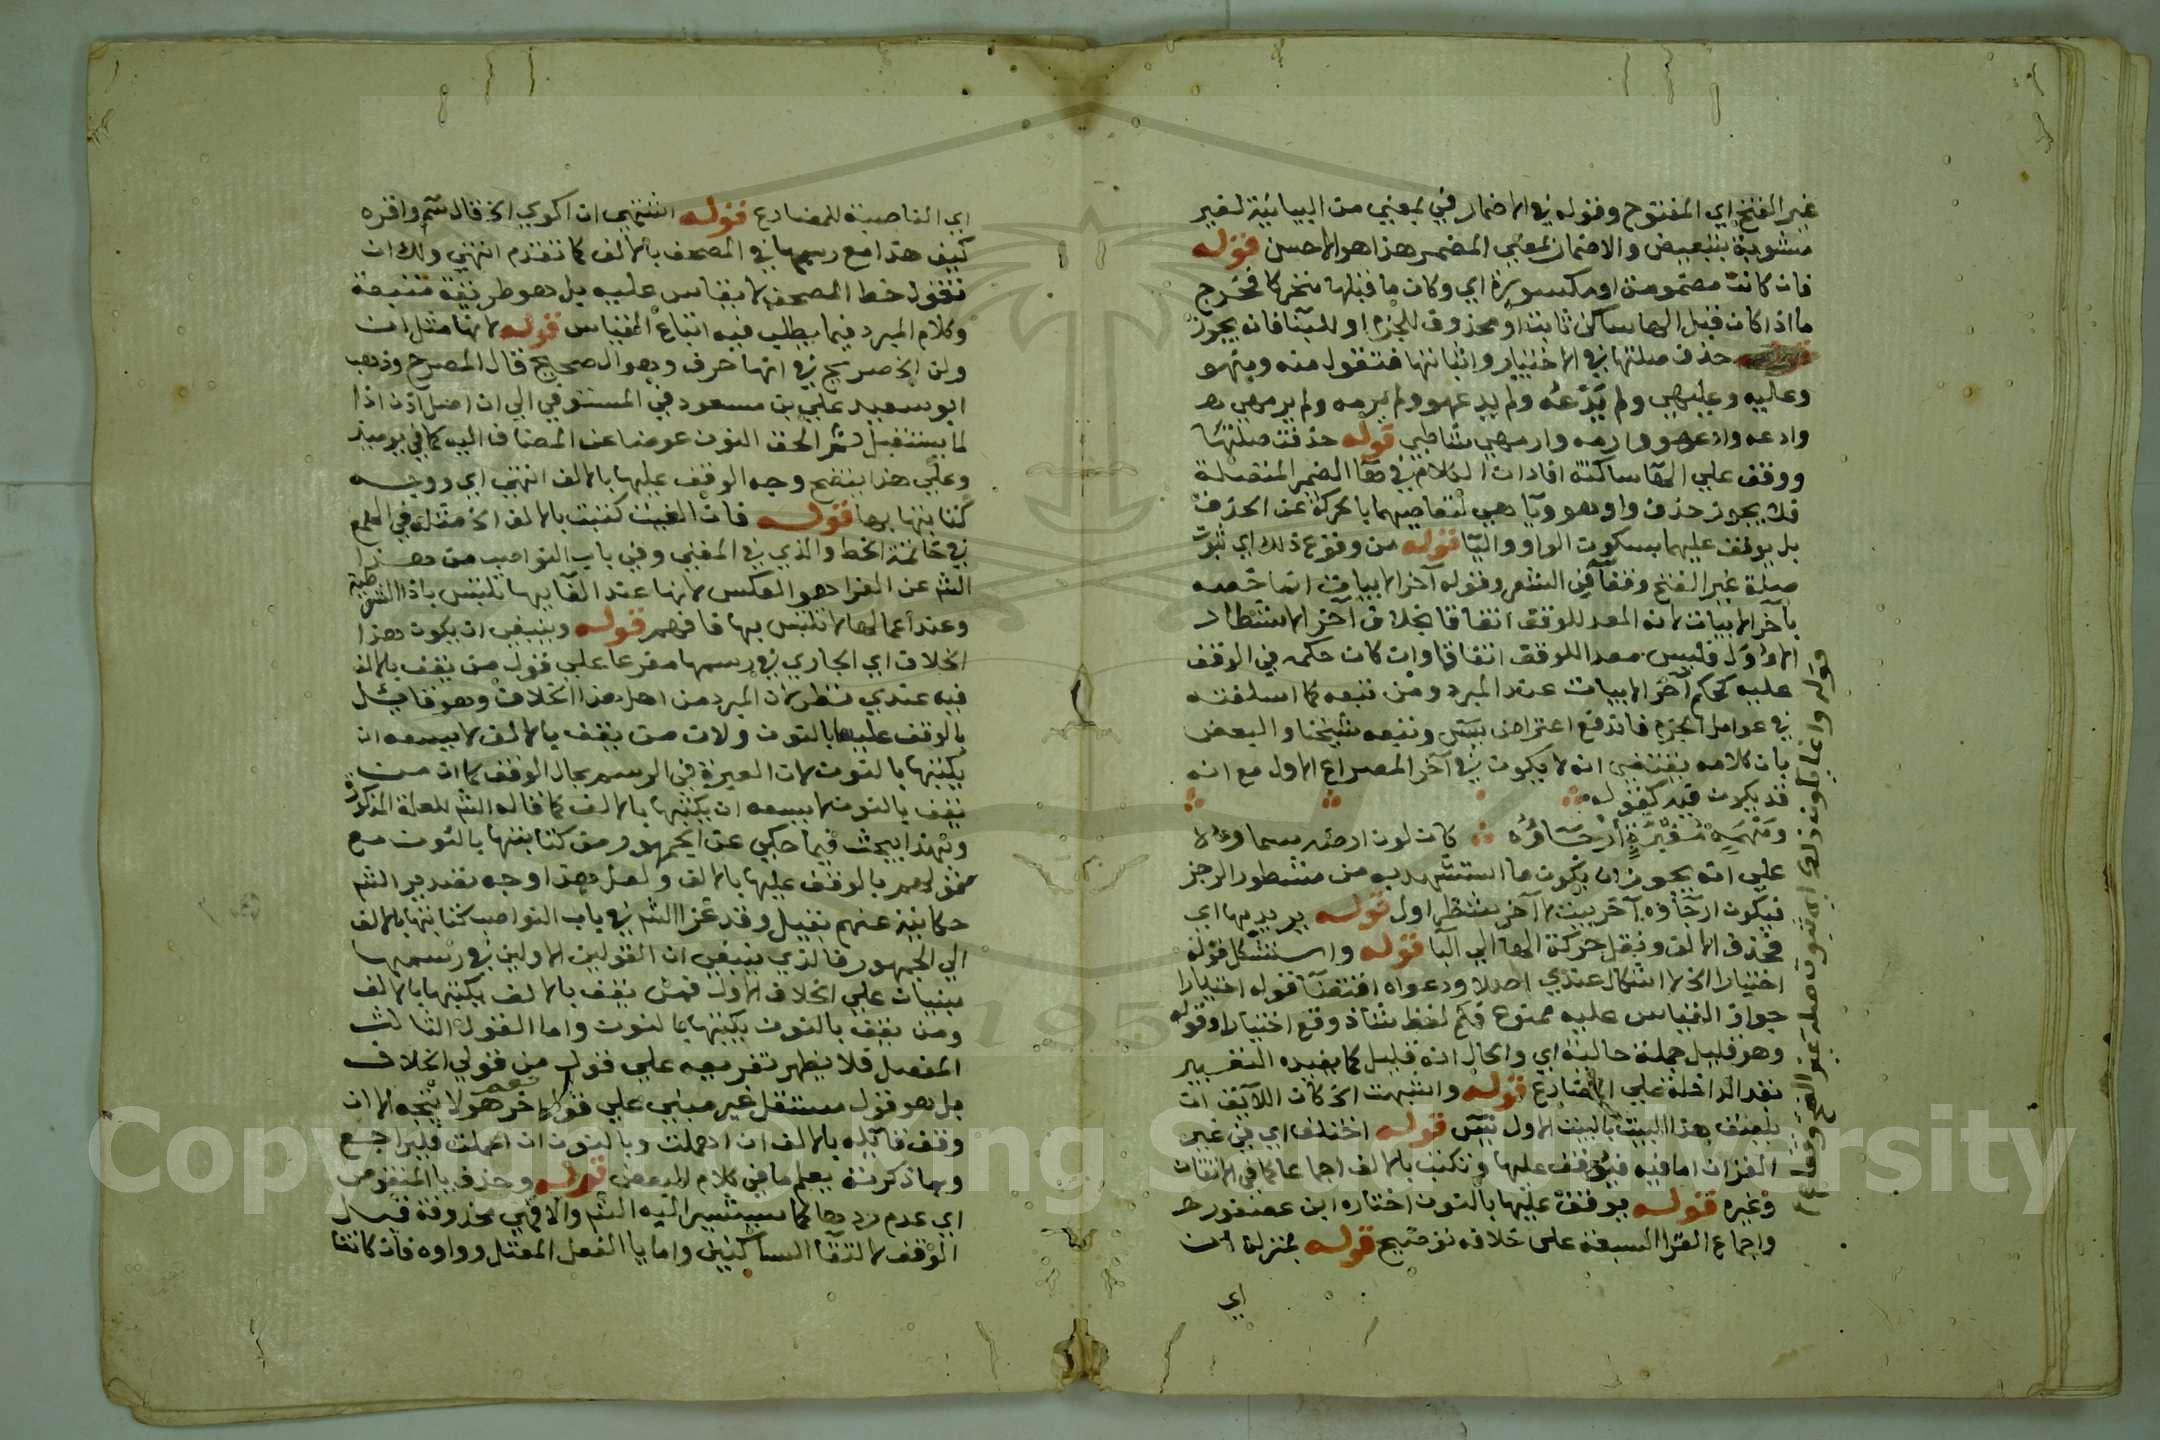 غير الفتح اي المفتوح وقوله في الاضمار في بمعني من البيانية لغير
مشوبة بتبعيض والاضمار بمعني المضمر هذا هو الاحسن قوله
فان كانت مضمومة او مكسورة اي وكان ما قبلها متحركا فخرج
ما اذا كان قبل الها ساكن ثابت او محذوف للجزم او للبنا فانه يجوز
حذف صلتها في الاختيار واثباتها فتقول منه ومنهو
وعليه وعليهي ولم يَدْعُه ولم يدعهو ولم يرمه ولم يرمهي
وادعه وادعهو وارمه وارمهي شاطبي قوله حذفت صلتها
ووقف علي الها ساكنة افاد ان الكلام في ها الضمير المتصلة
فلا يجوز حذف واو هو ويا هي لتعاصيهما بالحركة عن الحذف
بل يوقف عليهما بسكون الواو واليا قوله من وقوع ذلك اي ثبوت
صلة غير الفتح وقفا في الشعر وقوله آخر الابيات انما خصه
بآخر الابيات لانه المعد للوقف اتفاقا بخلاف آخر الاشطار
الاول فليس معدا للوقف اتفاقا وان كان حكمه في الوقف
عليه كحكم آخر الابيات عند المبرد ومن تبعه كما اسلفته
في عوامل الجزم فاندفع اعتراض يس وتبعه شيخنا والبعض
بان كلامه يقتضي انه لا يكون في آخر المصراع الاول مع انه
قد يكون فيه كقوله
ومَهْمَهٍ مُغْبَرَّةٍ أرجاؤُه كان لون ارضه سماؤه
علي انه يجوز ان يكون ما استشهد به من مشطور الرجز
فيكون ارجاؤه آخر بيت لا آخر شطر اول قوله يريد بها اي
فحذف الالف ونقل حركة الها الي البا قوله واستشكل قوله
اختيارا الخ لا اشكال عندي اصلا ودعواه اقتضا قوله اختيارا
جواز القياس عليه ممنوع فكم لفظ شاذ وقع اختيارا وقوله
وهو قليل جملة حالية اي والحال انه قليل كما يفيده التعبير
بقد الداخلة علي المضارع قوله واشبهت اذن كان اللائق ان
يلصق هذا البيت بالبيت الاول يس قوله اختلف اي في غير
القران اما فيه فيوقف عليها وتكتب بالالف اجماعا كما في الاتقان
وغيره قوله يوقف عليها بالنون اختاره ابن عصفور
واجماع القرا السبعة علي خلافه توضيح قوله بمنزلة ان
اي
اي الناصبة للمضارع قوله اشتهي ان اكوي الخ قال سم واقره
كيف هذا مع رسمها في المصحف بالالف كما تقدم انتهي ولك ان
تقول خط المصحف لا يقاس عليه بل هو طريقة متبعة
وكلام المبرد فيما يطلب فيه اتباع القياس قوله لانها مثل ان
ولن الخ صريح في انها حرف وهو الصحيح قال المصرح وذهب
ابو سعيد علي بن مسعود في المستوفي الي ان اصل اذن اذا
لما يستقبل ثم الحق النون عوضا عن المضاف اليه كما في يوميذ
وعلي هذا يتضح وجه الوقف عليها بالالف انتهي اي ووجه
كتابتها بها قوله فان الغيت كتبت بالالف الخ مثله في الهمع
في خاتمة الخط والذي في المغني وفي باب النواصب من هذا
الشم عن الفرا هو العكس لانها عند الغايها تلتبس باذا الشرطية
وعند اعمالها لا تلتبس بها فافهم قوله وينبغي ان يكون هذا
الخلاف اي الجاري في رسمها مفرعا علي قول من يقف بالالف
فيه عندي نظر لان المبرد من اهل هذا الخلاف وهو قايل
بالوقف عليها بالنون ولان من يقف بالالف لا يسعه ان
يكتبها بالنون لان العبرة في الرسم بحال الوقف كما ان من
يقف بالنون لا يسعه ان يكتبها بالالف كما قاله الشم للعلة المذكورة
وبهذا يبحث فيما حكي عن الجمهور من كتابتها بالنون مع
قولهم بالوقف عليها بالالف ولعل هذا وجه تصدير الشم
حكايته عنهم بقيل وقد عزا الشم في باب النواصب كتابتها بالالف
الي الجمهور فالذي ينبغي ان القولين الاولين في رسمها
مبنيان علي الخلاف الاول فمن يقف بالالف يكتبها بالالف
ومن يقف بالنون يكتبها بالنون واما القول الثالث
المفصل فلا يظهر تفريعه علي قول من قولي الخلاف
بل هو قول مستقل غير مبني علي قول اخر نعم هو لا يتجه الا ان
وقف قايله بالالف ان اهملت وبالنون ان اعملت فليراجع
وبما ذكرنه يعلم ما في كلام البعض قوله وحذف يا المنقوص
اي عدم ردها كما سيشير اليه الشم والا فهي محذوفة قبل
الوقف لالتقا الساكنين واما يا الفعل المعتل وواوه فان كانتا
قوله وانما يكون ذلك اي ثبوت صلة غير الفتح وقفا
Copyright © King Saud University